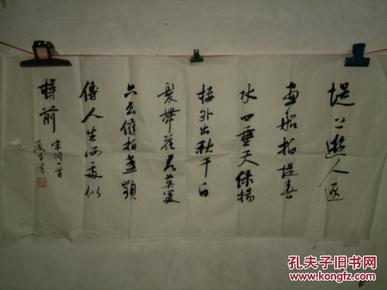 堤上遊人逐
画船拍堤春
水四垂天绿杨
楼外出秋千白
髮戴花君莫笑
六幺催拍盏频
傳人生何处似
樽前
宋词一首
孔夫子旧书网